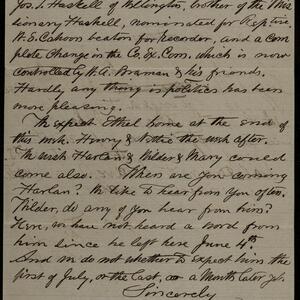 Jos. I. Haskell of Arlington, brother of the Mis-
sionary Haskell, nominated for Rep'tive.
W. E. Cahoon for Recorder, and a com
plete Change in the Co. Ex. Com. which is now
controlled by W. A. Braman & his friends.
Hardly any thing in politics has been
more pleasing.
We expect Ethel home at the end of
this mth. Henry & Nettie the wk after.
We wish Harlan & Wilder & Mary could
come also. When are you coming
Harlan? We like to hear from you often.
Wilder, do any of you hear from him?
Here, we have not heard a word from
him since he left here June 4th
And we do not whether to expect him the
first of July, or the last, or a Month later yet.
Sincerely